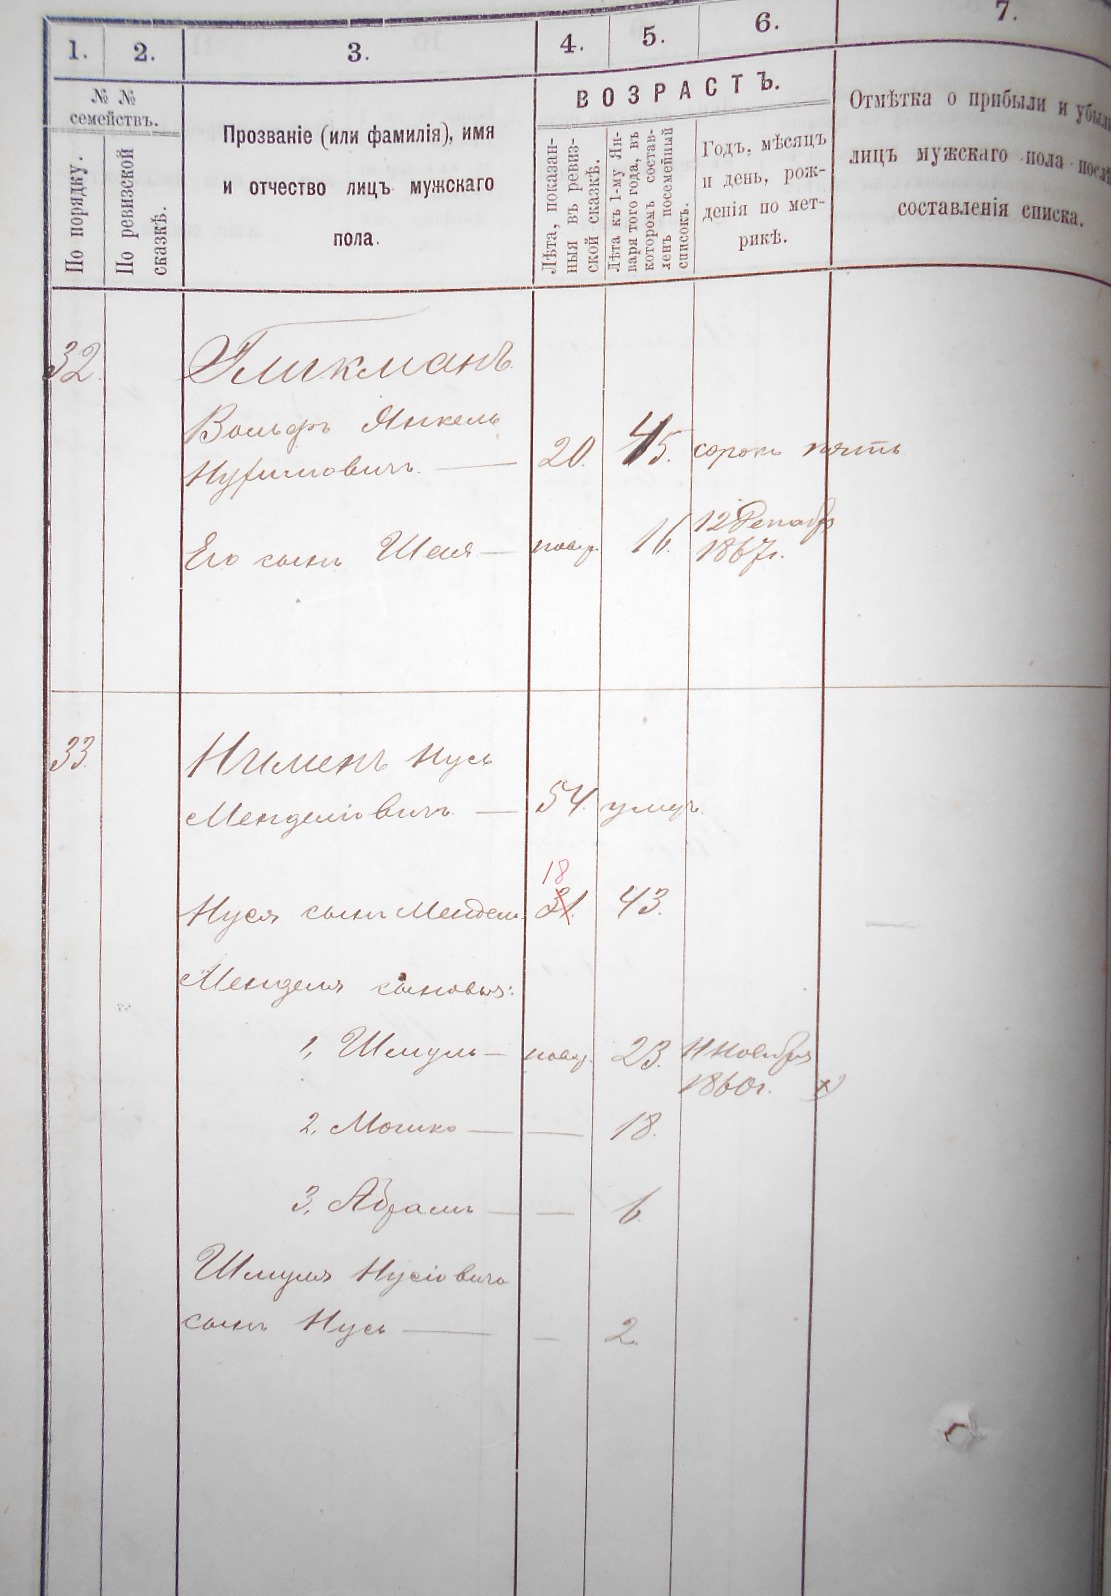 1. 2. 3. 4. 5. 6. 7.
№ № семействъ.
По порядку.
По ревизской сказкѣ.
Прозваніе (или фамилія), имя
и отчество лицъ мужскаго
пола.
ВОЗРАСТЪ.
Лѣта, показан-
ныя въ ревиз-
ской сказкѣ.
Лѣта къ 1-му Ян-
варя того года, въ
которомъ состав-
ленъ посемейный
списокъ.
Годъ, мѣсяцъ
и день, рож-
денія по мет-
рикѣ.
Отмѣтка о прибыли и убыли
лицъ мужскаго пола послѣ
составленія списка.
32. Гликманъ
Вольфъ Янкель
20. 45. сорокъ пять
Его сынъ Шея — 16. 12 Декабр
1867г.
33. Нусь
Менделіовичъ — 54. умер.
18
Нуся сынъ Мендель 31. 43.
Менделя сыновья:
1, Шмуль — 23. 11 Ноября
1860г.
2, Мошко — — 18.
3, Абрамъ — — 6.
Шмуля Нусіовича
сынъ Нусь — — 2.